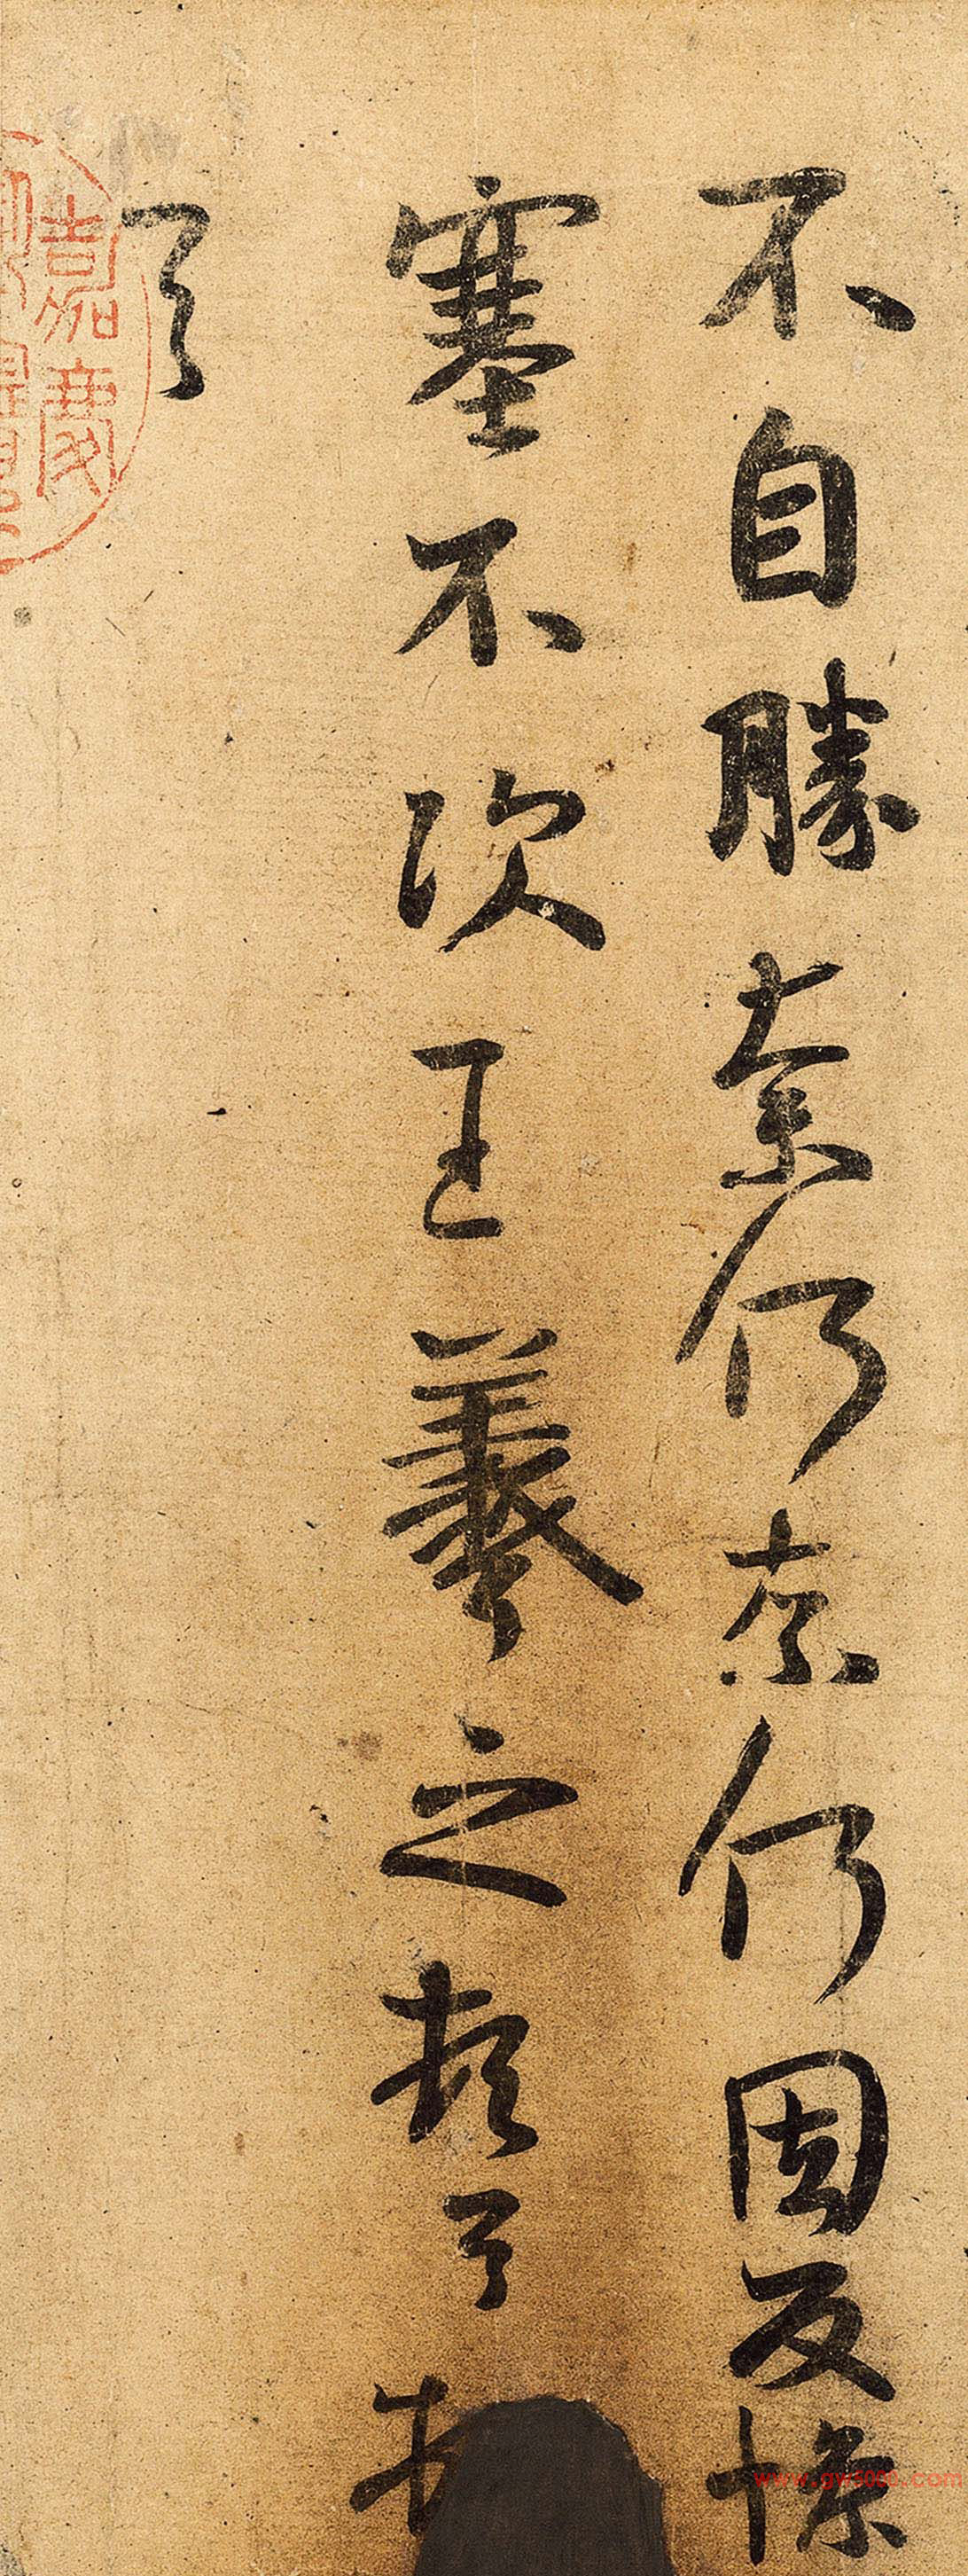 不自勝奈何奈何因反慘
塞不次王羲之頓首
首
嘉慶
www.gw5000.com